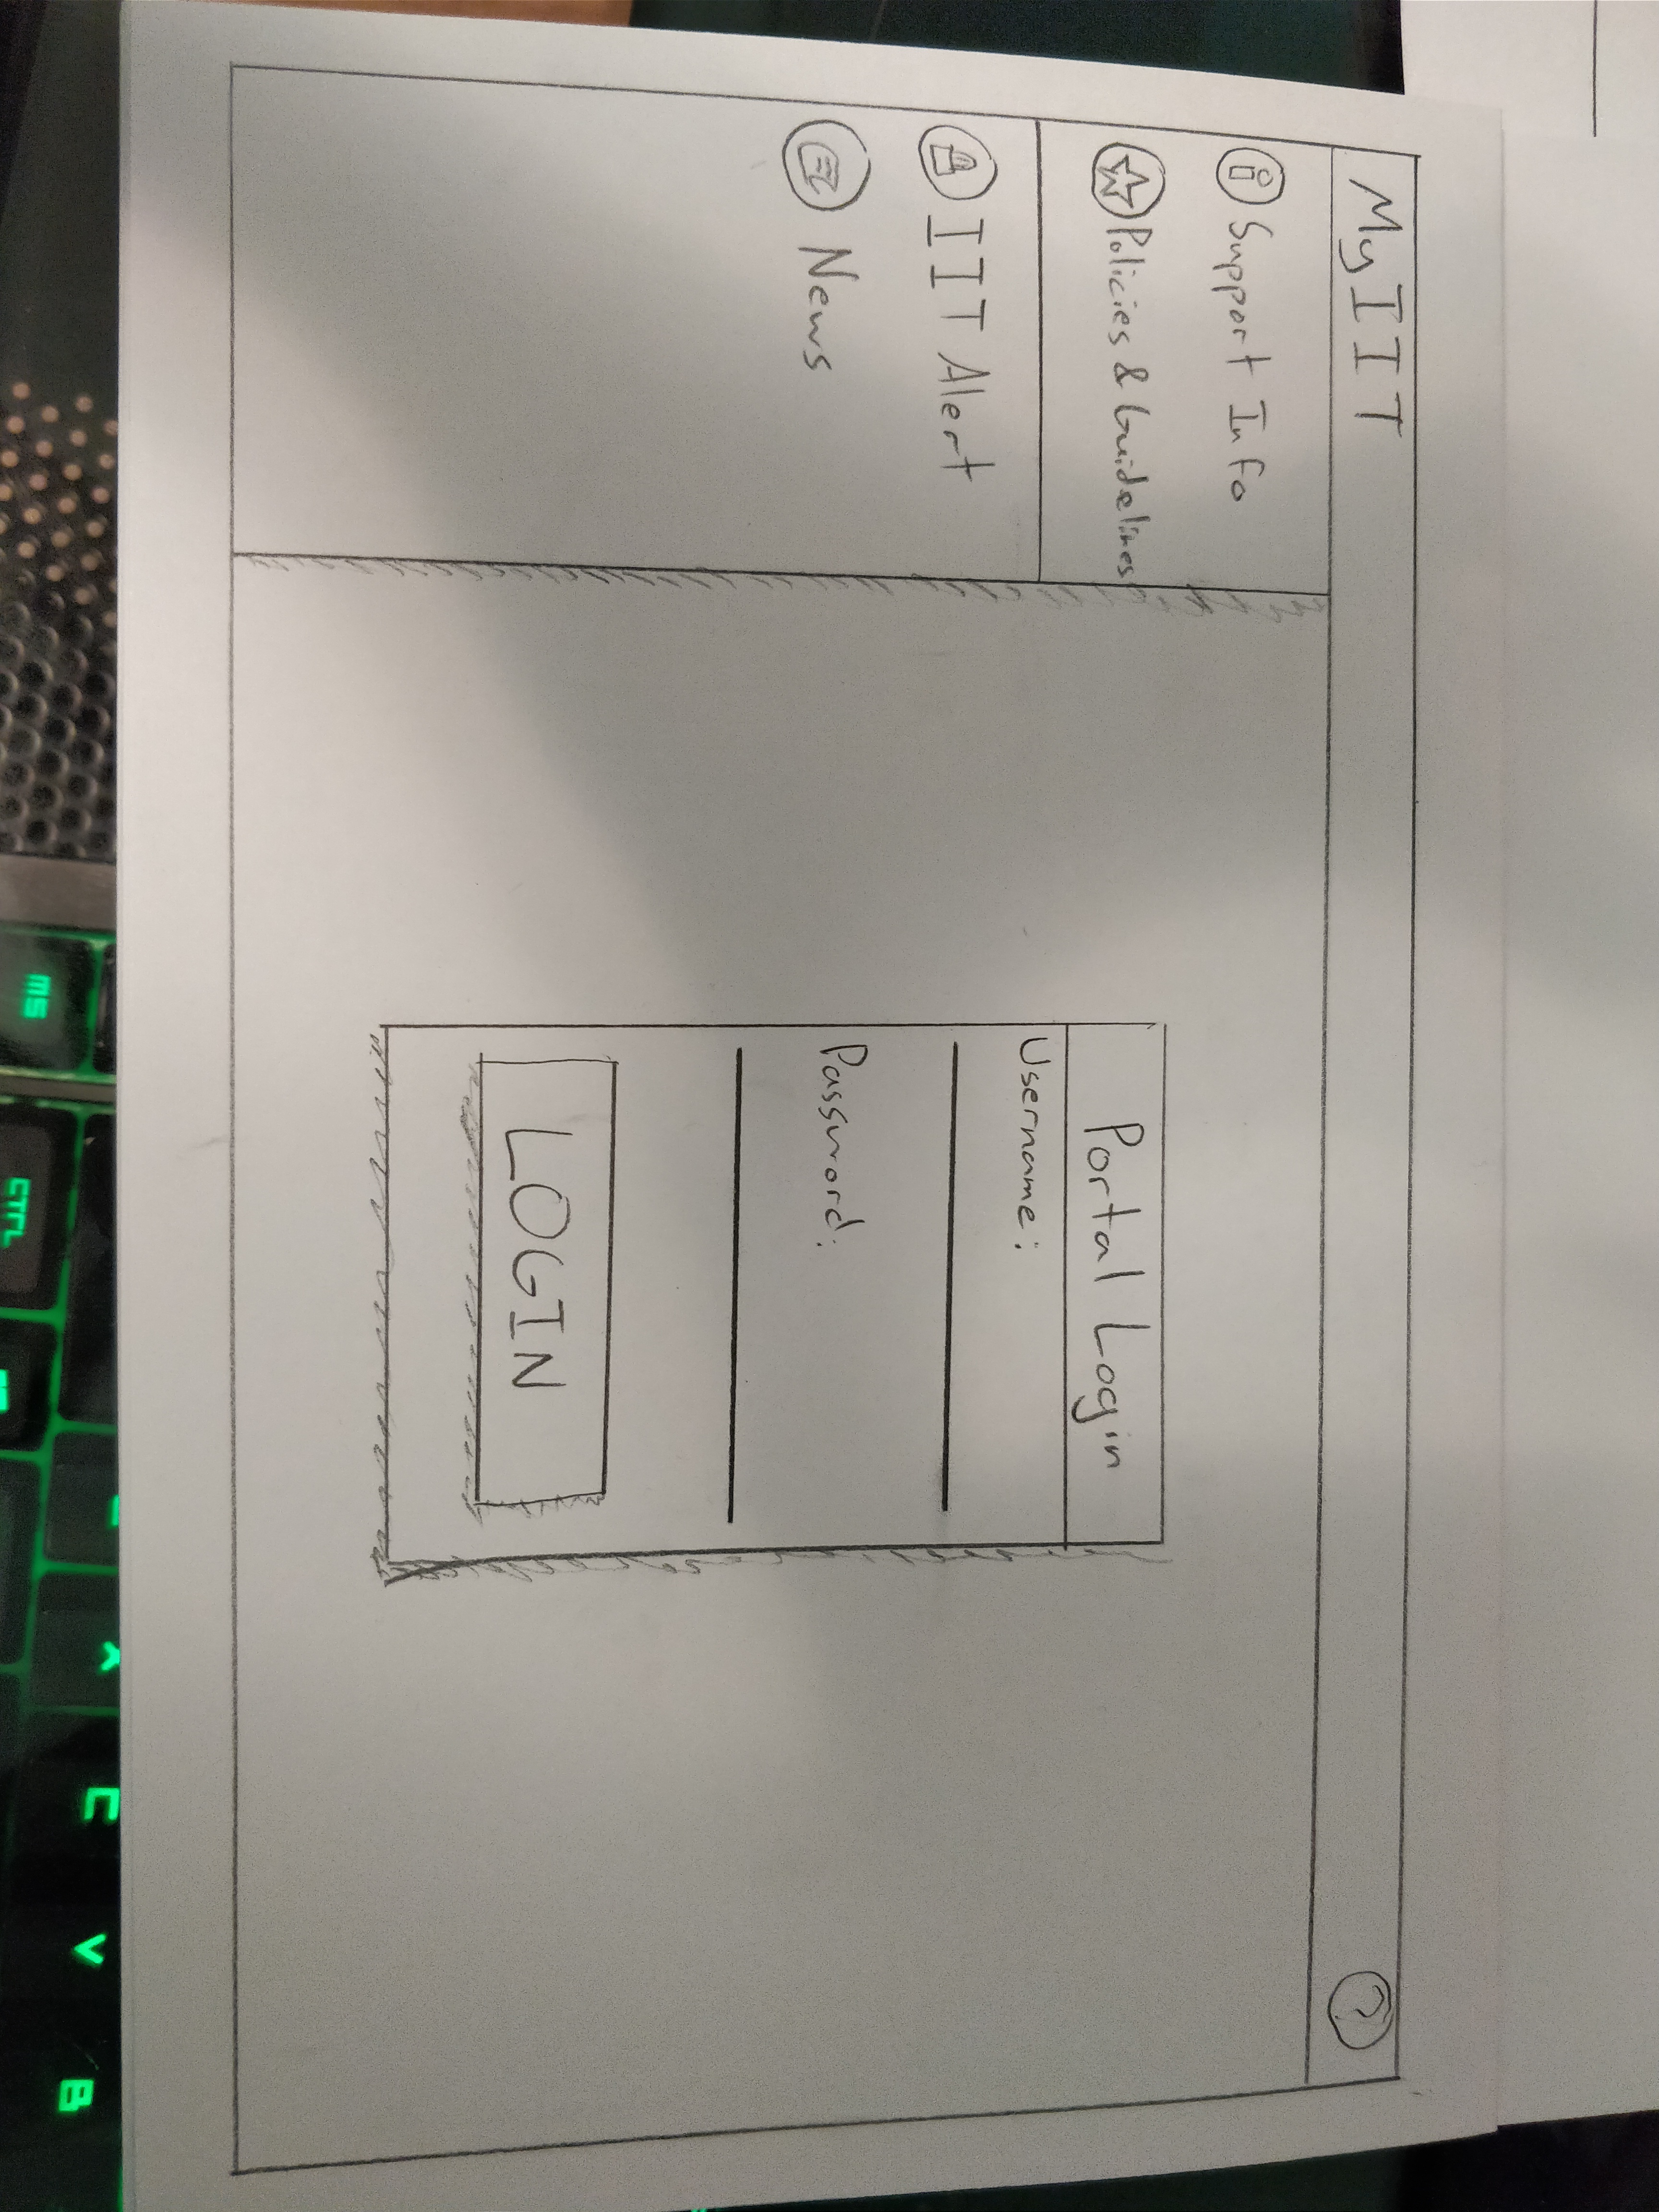 MyIIT
Support Info
Policies & Guidelines
IIT Alert
News
Portal Login
Username:
Password:
LOGIN
MS
CTRL
X
C
V
B